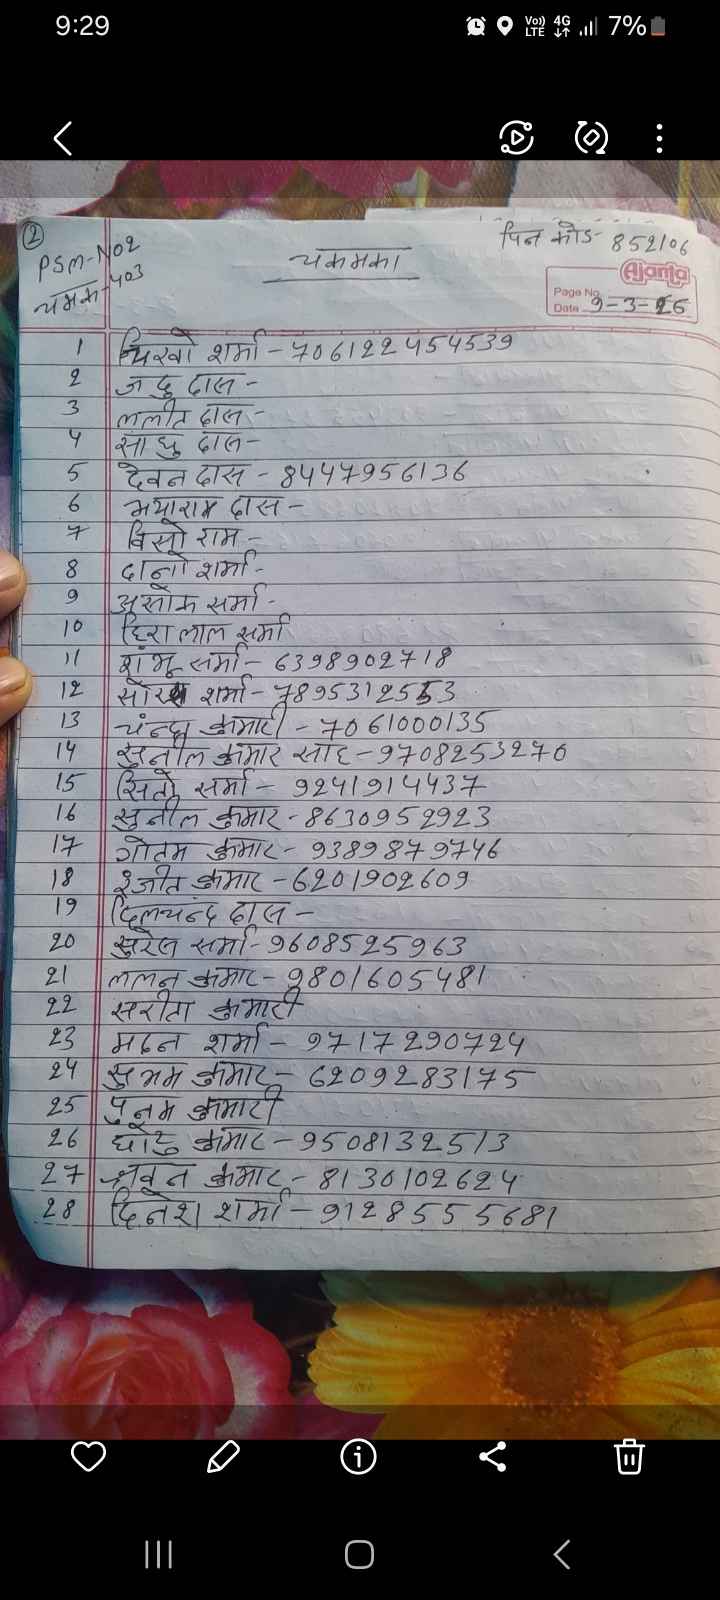 9:29
Vo)) LTE 4G 7%
2
PSM-NO2
चमक-403
चकमका
पिन कोड- 852106
Ajanta
Page No.
Date 9-3-26
1 शर्मा - 706122454539
2 जदु दास -
3 ललीत दास -
4 साधु दास -
5 देवन दास - 8447956136
6 मयाराम दास -
7 विसो राम -
8 दानो शर्मा -
9 असोक सर्मा -
10 हिरा लाल सर्मा
11 शंभू सर्मा - 6398902718
12 शर्मा - 7895312553
13 चंन्दा कुमारी - 7061000135
14 सुनील कुमार साह - 9708253270
15 सितो सर्मा - 9241914437
16 सुनील कुमार - 8630952923
17 गोतम कुमार - 9389879746
18 रंजीत कुमार - 6201902609
19 दिलचन्द दास -
20 सुरेस सर्मा - 9608525963
21 ललन कुमार - 9801605481
22 सरीता कुमारी
23 मदन शर्मा - 9717290724
24 सुभम कुमार - 6209283175
25 पुनम कुमारी
26 घोटु कुमार - 9508132513
27 श्रवन कुमार - 8130102624
28 दिनेश शर्मा - 9128555681